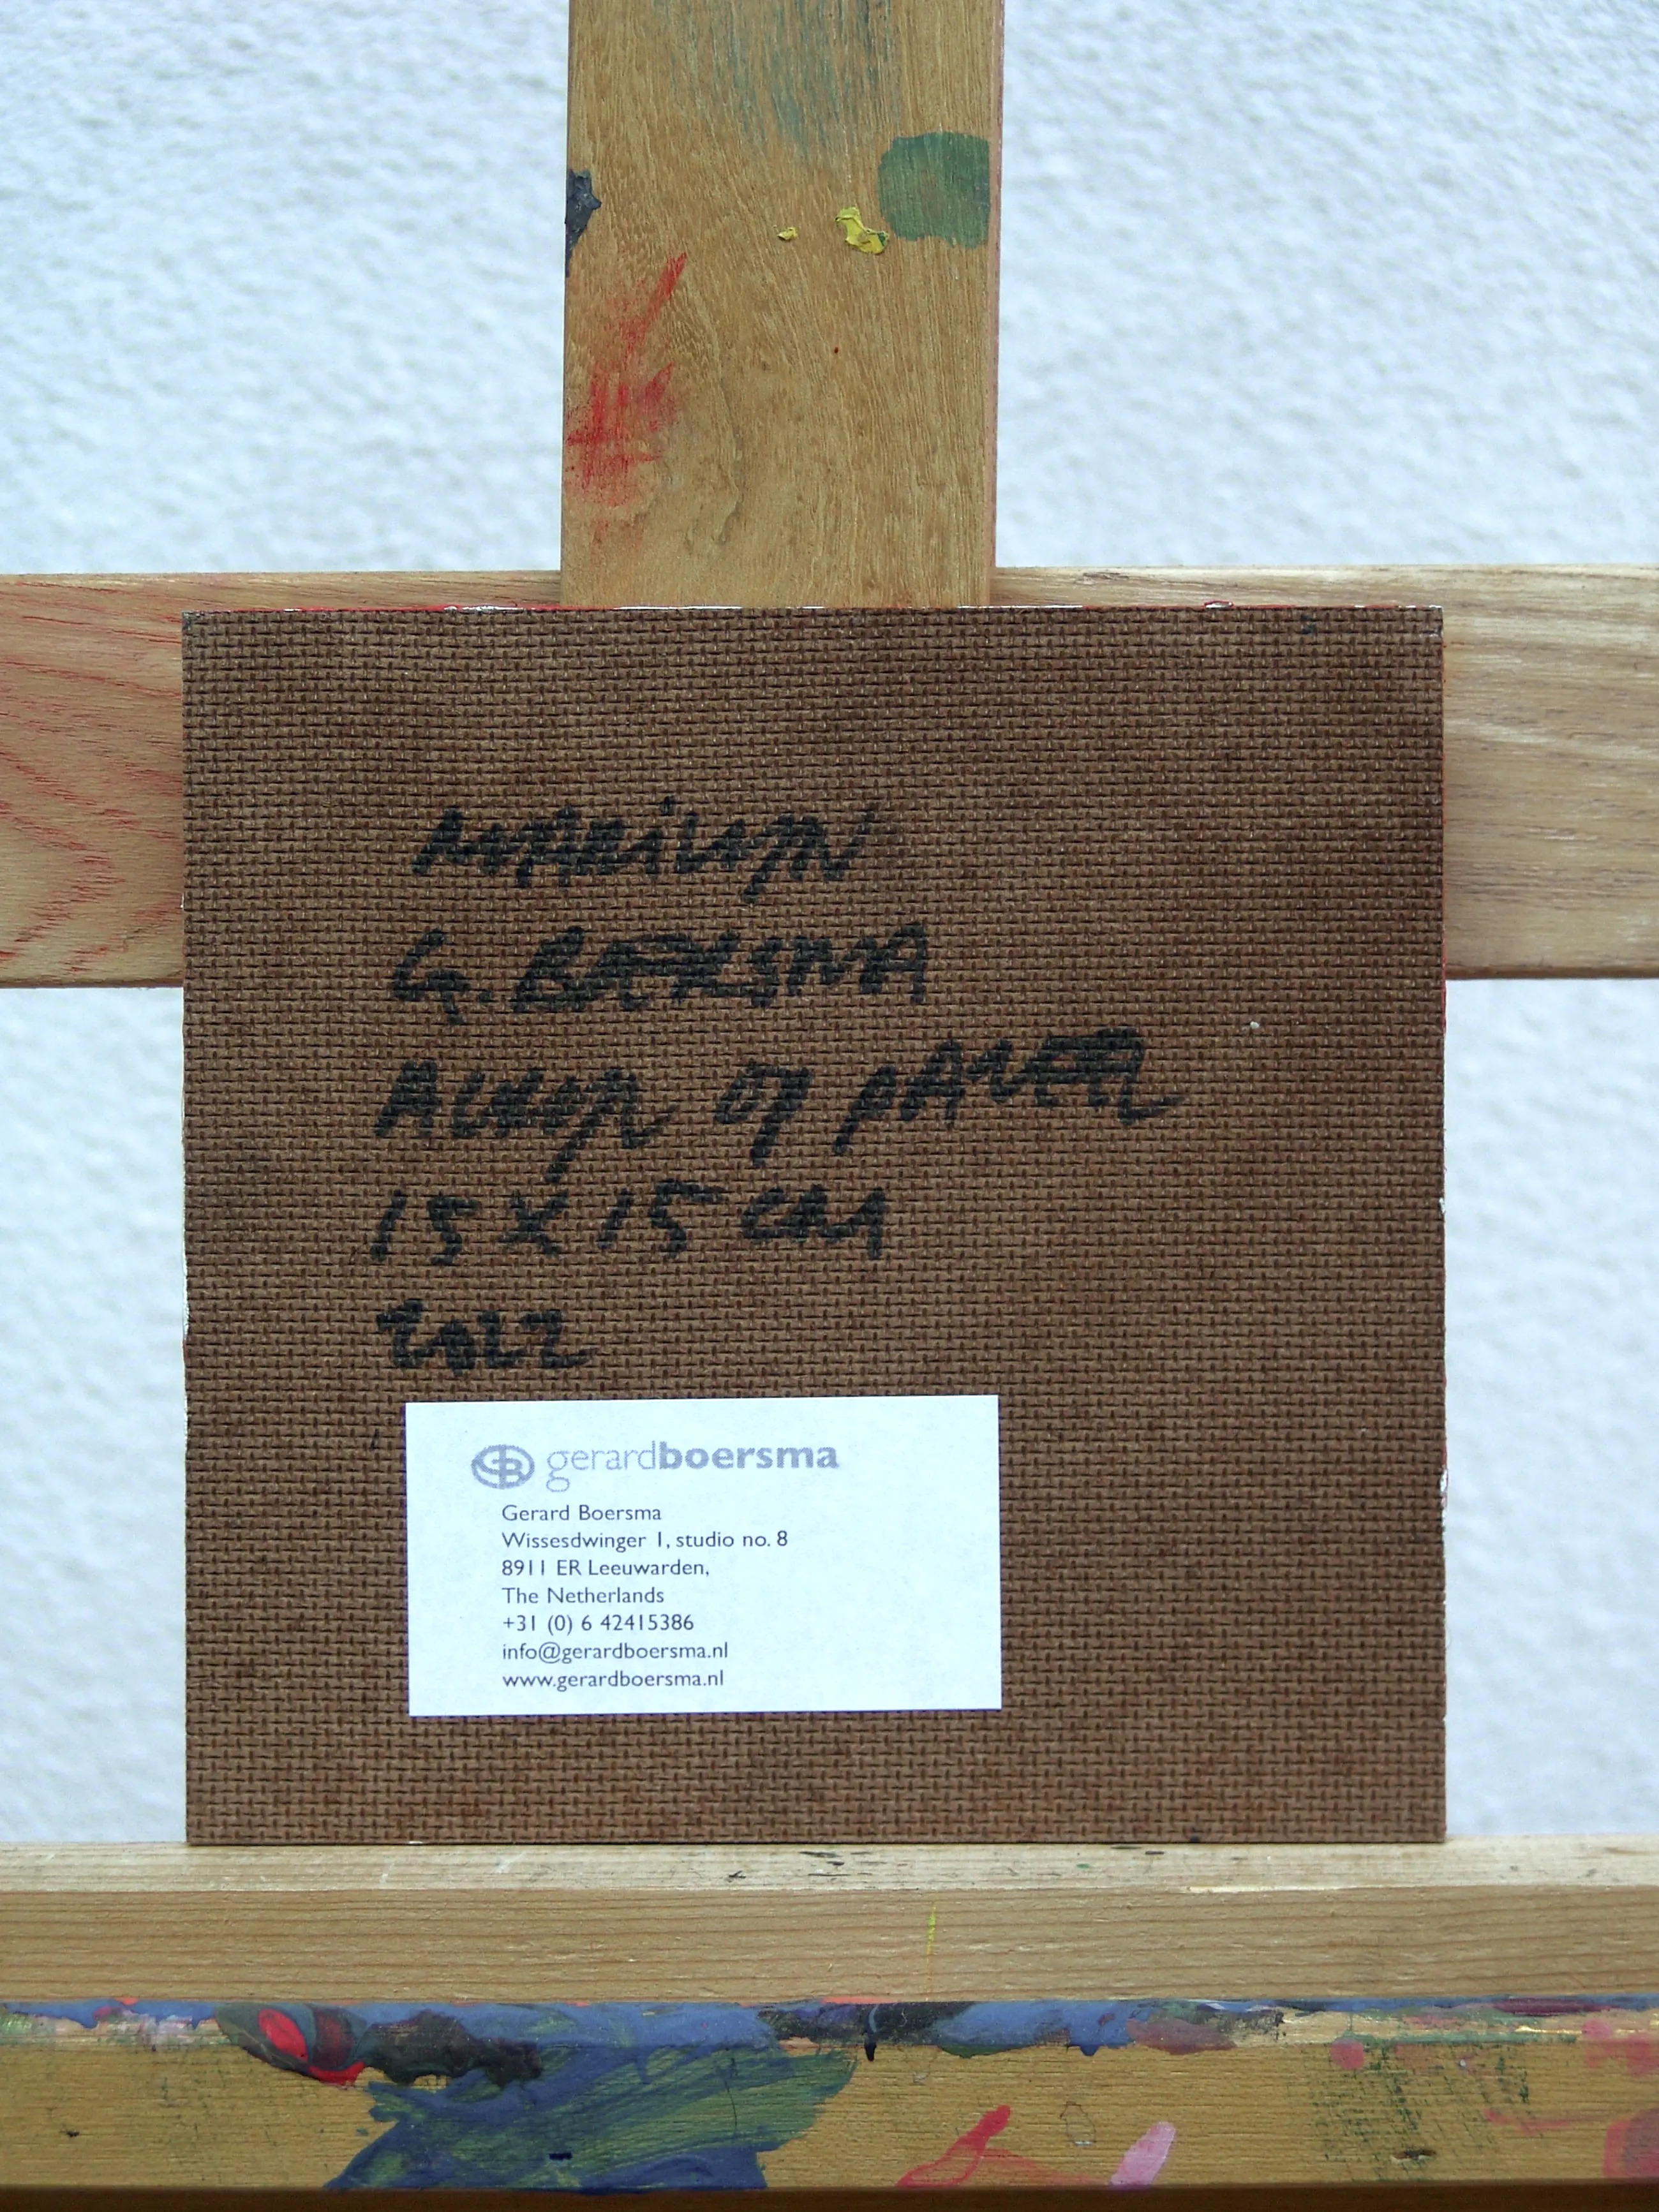 MARiLYN
G. BOERSMA
ACRYL OP PANEEL
15 X 15 CM
2022
GB gerardboersma
Gerard Boersma
Wissesdwinger 1, studio no. 8
8911 ER Leeuwarden,
The Netherlands
+31 (0) 6 42415386
info@gerardboersma.nl
www.gerardboersma.nl